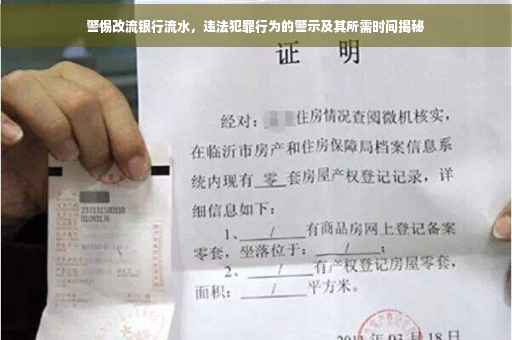 警惕改流银行流水，违法犯罪行为的警示及其所需时间揭秘
证 明
经对：住房情况查阅微机核实，
在临沂市房产和住房保障局档案信息系
统内现有 零 套房屋产权登记记录，详
细信息如下：
1、 / 有商品房网上登记备案
零套，坐落位于： / ；
2、 / 有产权登记房屋零套，
面积： / 平方米。
月 18 日